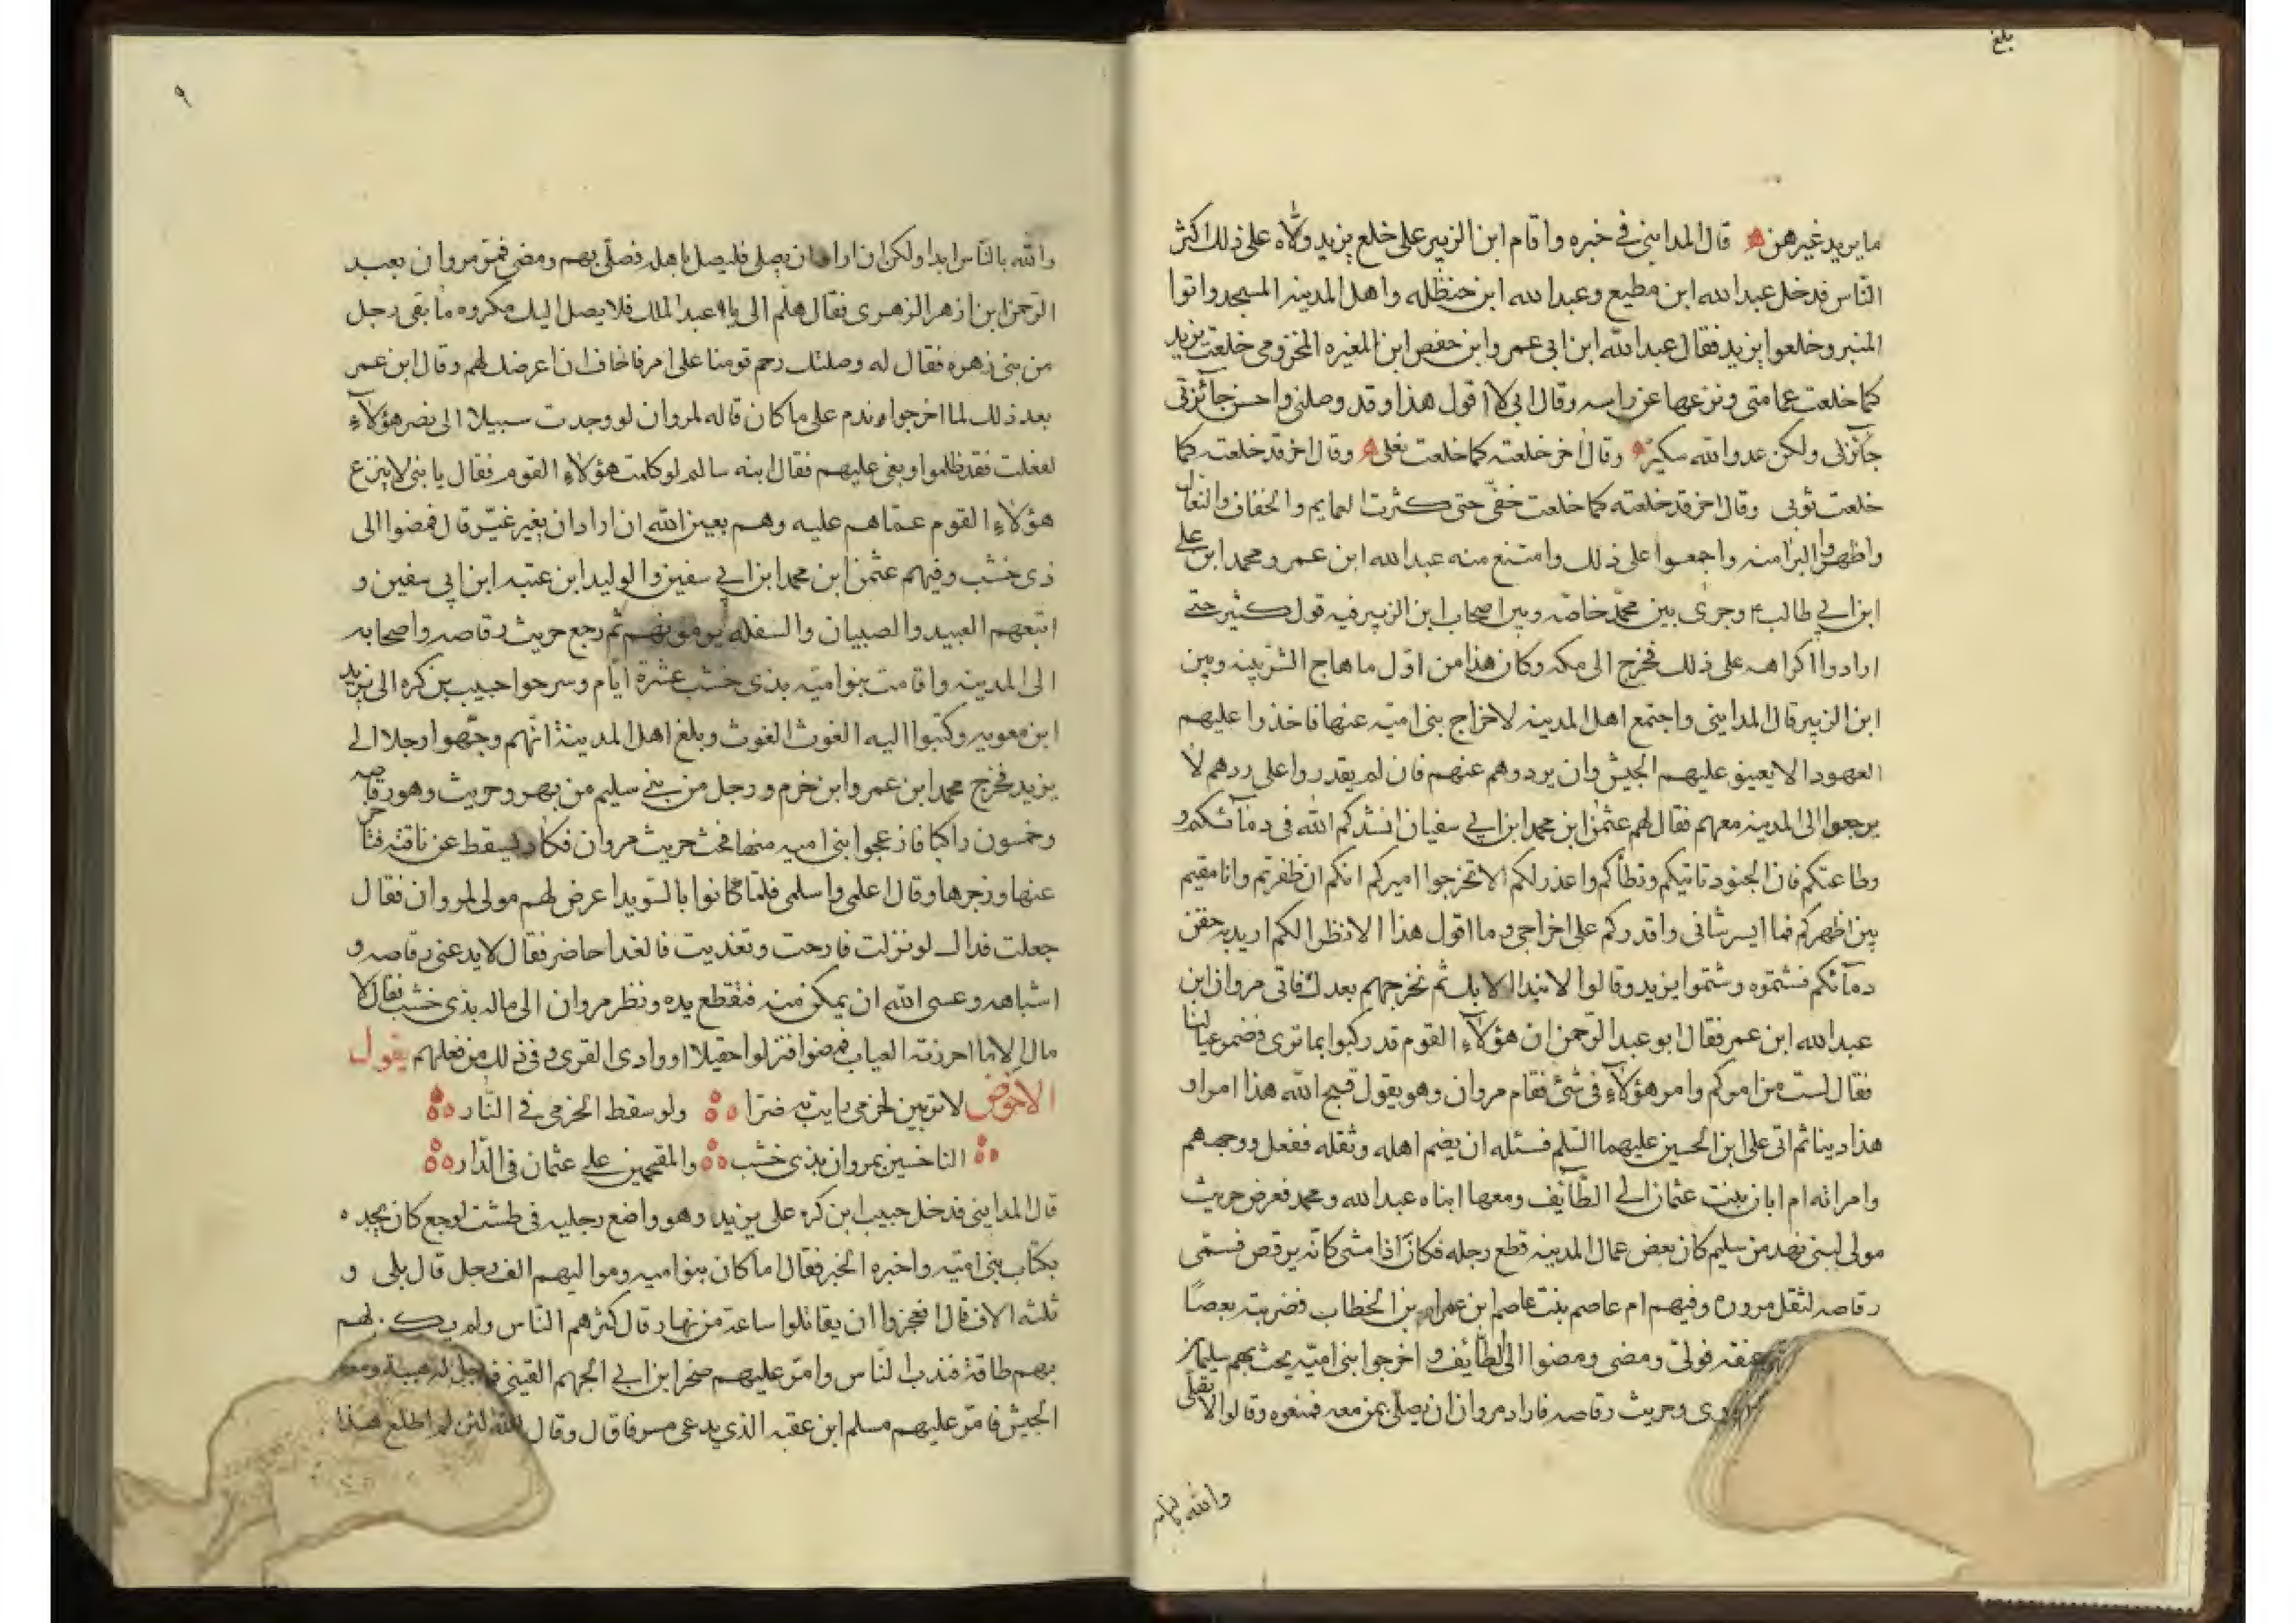 بلغ
ما يريد غيرهن قال المدايني في خبره واقام ابن الزبير على خلع يزيد ولّاه على ذلك اكثر
النّاس فدخل عبد الله ابن مطيع وعبد الله ابن حنظله واهل المدينه المسجد واتوا
المنبر وخلعوا يزيد فقال عبد الله ابن ابي عمر وابن حفص ابن المغيره المخزومي خلعت يزيد
كما خلعت عمامتى ونزعها عن راسه وقال اني لا اقول هذا وقد وصلني واحسن جآئزتي
ولكن عدو الله سكير وقال اخر خلعته كما خلعت نعلى وقال اخر قد خلعته كما
خلعت ثوبى وقال اخر قد خلعته كما خلعت خفّي حتى كثرت العمايم والخفاف والنعال
واظهروا البرامنه واجمعوا على ذلك وامتنع منه عبد الله ابن عمر ومحمد ابن على
ابن ابي طالب ع وجرى بين محمّد خاصّه وبين اصحاب ابن الزبير فيه قول كثير حتى
ارادوا اكراهه على ذلك فخرج الى مكه وكان هذا من اوّل ما هاج الشرّ بينه وبين
ابن الزبير قال المدايني واجتمع اهل المدينه لاخراج بني اميّه عنها فاخذوا عليهم
العهود الا يعينو عليهم الجيش وان يردوهم عنهم فان لم يقدروا على ردهم لا
يرجعوا الى المدينه معهم فقال لهم عثمن ابن محمد ابن ابي سفيان انشدكم الله في دمآئكم و
وطاعتكم فان الجنود تاتيكم وتطأكم واعذر لكم الا تخرجوا اميركم انكم ان ظفرتم وانا مقيم
بين اظهركم فما ايسر شاني واقدركم على اخراجي وما اقول هذا الا نظرا لكم اريد به حقن
دمآئكم فشتموه وشتموا يزيد وقالوا لا نبدا الا بك ثم نخرجهم بعدك فاتى مروان ابن
عبد الله ابن عمر فقال ابو عبد الرّحمن ان هؤلآء القوم قد ركبوا بما ترى فضم عيالنا
فقال لست من امركم وامر هؤلآء في شئ فقام مروان وهو يقول قبح الله هذا امرا و
هذا دينا ثم اتى على ابن الحسين عليهما السّلم فسئله ان يضم اهله وثقله ففعل ووجههم
وامراته ام ابان بنت عثمان الى الطّآئف ومعها ابناه عبد الله ومحمد فعرض حريث
مولى لبني بهد من سليم كان بعض عمال المدينه قطع رجله فكان اذا مشى كانّه يرقص فسمّى
رقاصه لثقل مروان وفيهم ام عاصم بنت عاصم ابن عمر بن الخطاب فضربته بعصًا
عنقه فولّى ومضى ومضوا الى الطّآئف واخرجوا بني اميّه يحث بهم سليمان
وحريث رقاصه فاراد مروان ان يصلّى بمن معه فمنعوه وقالوا لا يصلّى
والله بالناس
٩
والله بالنّاس ابدا ولكن ان اراد ان يصلى فليصل باهله فصلّى بهم ومضى فمرّ مروان بعبد
الرّحمن ابن ازهر الزهرى فقال هلّم الى يا ابا عبد الملك فلا يصل اليك مكروه ما بقى رجل
من بني زهره فقال له وصلتك رحم قومنا على امر فاخاف ان اعرضك لهم وقال ابن عمر
بعد ذلك لما اخرجوا وندم على ما كان قاله لمروان لو وجدت سبيلا الى نصر هؤلآء
لفعلت فقد ظلموا وبغى عليهم فقال ابنه سالم لو كلمت هؤلاء القوم فقال يا بني لا ينزع
هؤلاء القوم عمّاهم عليه وهم بعين الله ان اراد ان يغير غيّر قال فمضوا الى
ذى خشب وفيهم عثمن ابن محمد ابن ابي سفين والوليد ابن عتبه ابن ابي سفين و
اتبعهم العبيد والصبيان والسفله يرمونهم ثم رجع حريث رقاصه واصحابه
الى المدينه واقامت بنو اميّه بذى خشب عشرة ايّام وسرحوا حبيب بن كره الى يزيد
ابن معويه وكتبوا اليه الغوث الغوث وبلغ اهل المدينة انّهم وجّهوا رجلا الى
يزيد فخرج محمد ابن عمر وابن خرم ورجل من بني سليم من بهر وحريث وهو رقاصه
وخمسون راكبا فازعجوا بني اميه منها فنخث حريث مروان فكاد يسقط عن ناقته فتاخر
عنها وزجرها وقال اعلمى واسلمى فلمّا كانوا بالسّويدا عرض لهم مولى لمروان فقال
جعلت فداك لو نزلت فارحت وتغذيت فالغدا حاضر فقال لا يدعنى رقاصه و
اشباهه وعسى الله ان يمكن منه فنقطع يده ونظر مروان الى ماله بذى خشب فقال لا
مال الا ما احرزته العياب فمضوا فنزلوا حقيلا او وادى القرى وفي ذلك من فعلهم يقول
الاخوض لا ترثين لحزمي رايت به ضرّا ولو سقط الحزمى في النّار
الناخسين بمروان بذى خشب والمقحمين على عثمان فى الدّار
قال المدايني فدخل حبيب ابن كره على يزيد وهو واضع رجليه في طشت لوجع كان يجده
بكتاب بني اميّه واخبره الخبر فقال اما كان بنو اميه ومواليهم الف رجل قال بلى و
ثلثه الاف قال افعجزوا ان يقاتلوا ساعة من نهار قال كثرهم النّاس ولم يك لهم
بهم طاقة فندب النّاس وامّر عليهم صخر ابن ابي الجهم القيني
الجيش فامّر عليهم مسلم ابن عقبه الذي يدعى مسرفا قال وقال لئن لم اطلع هذا